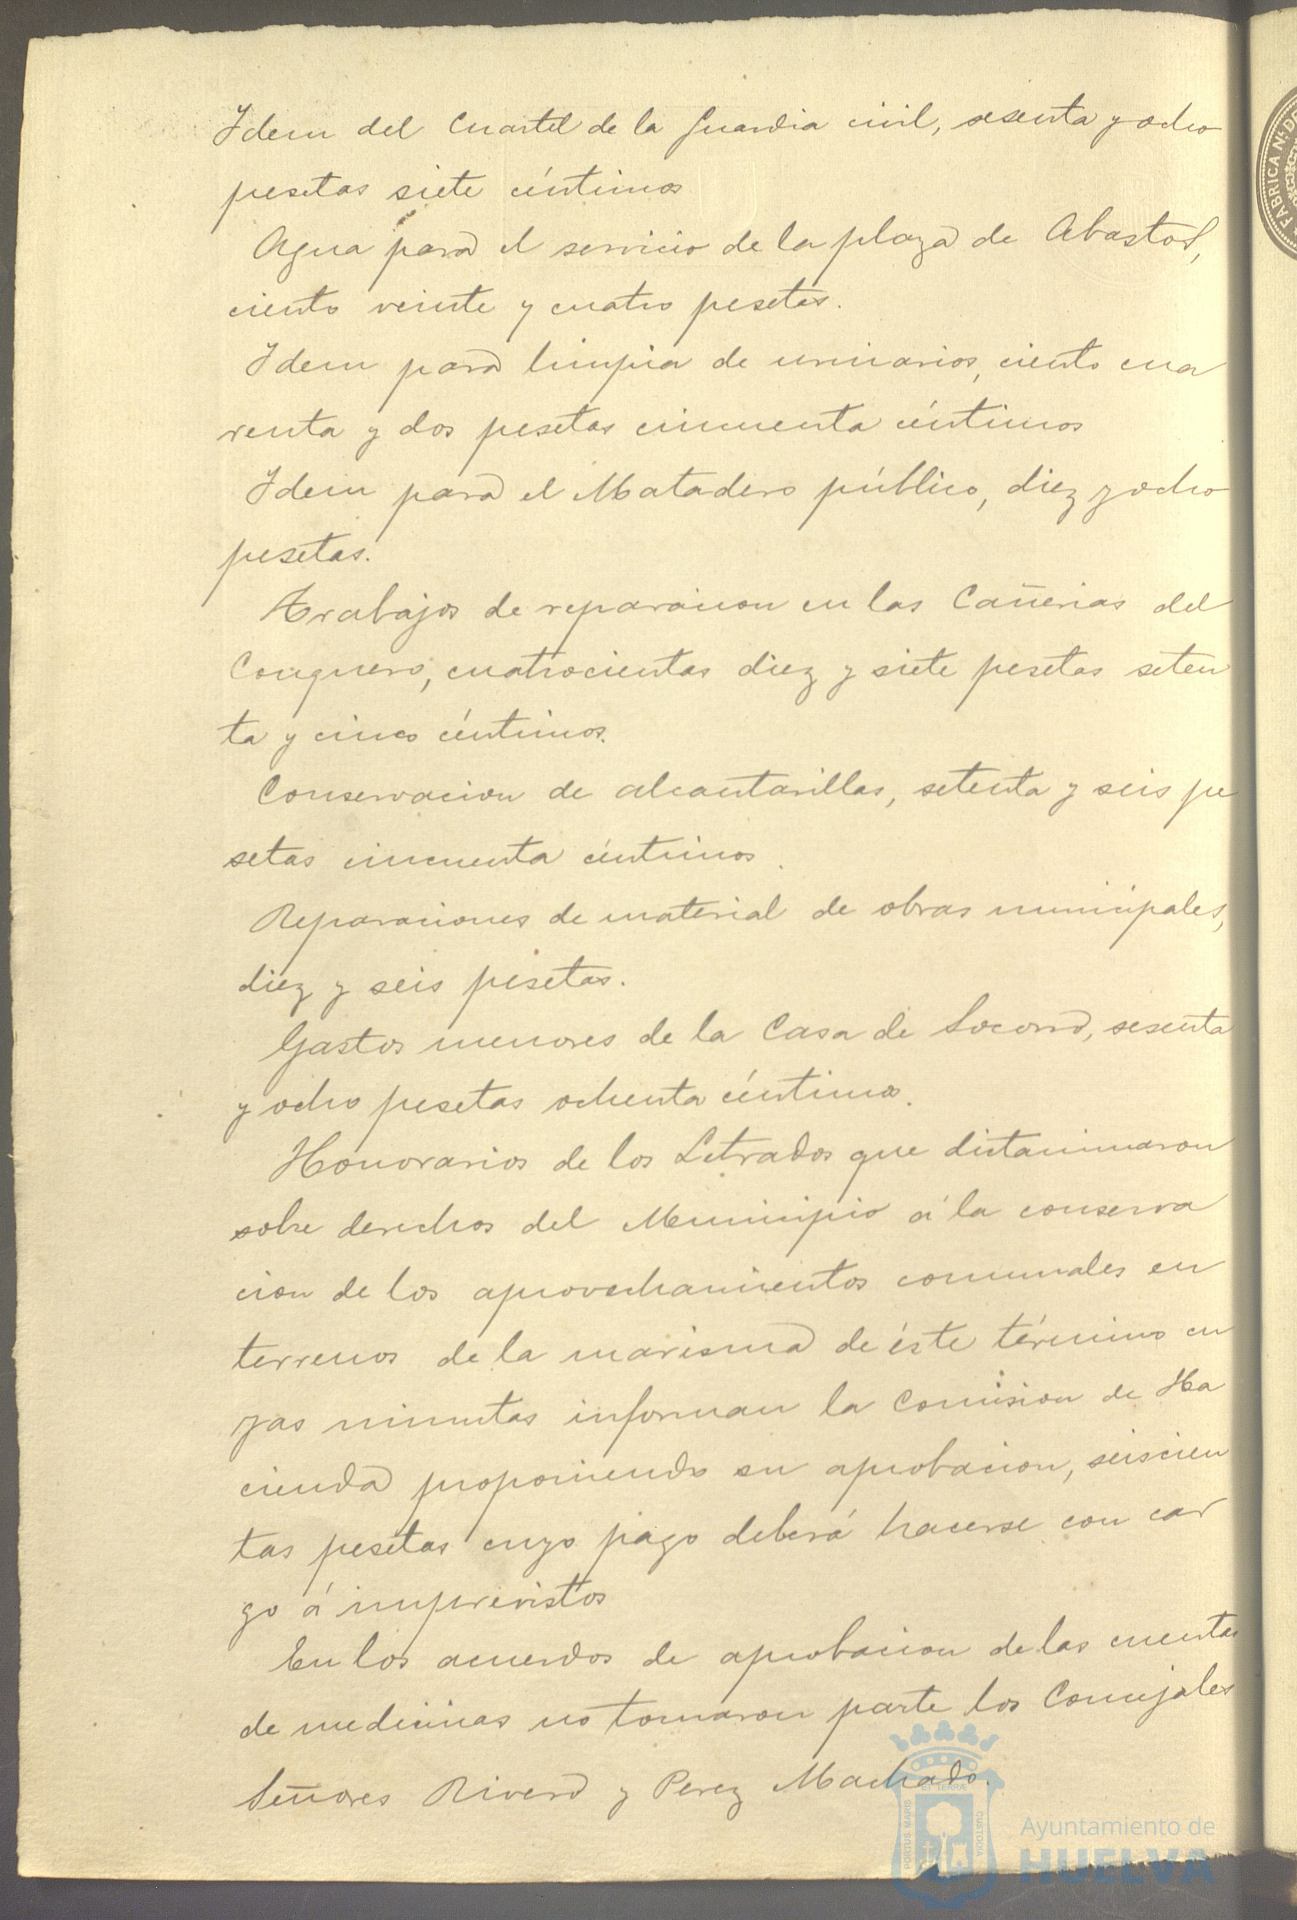 Idem del Cuartel de la Guardia civil, sesenta y ocho
pesetas siete céntimos
Agua para el servicio de la plaza de Abastos,
ciento veinte y cuatro pesetas.
Idem para limpia de urinarios, ciento cua
renta y dos pesetas cincuenta céntimos
Idem para el Matadero público, diez y ocho
pesetas.
Trabajos de reparacion en las Cañerias del
Conquero, cuatrocientas diez y siete pesetas seten
ta y cinco céntimos.
Conservacion de alcantarillas, setenta y seis pe
setas cincuenta céntimos.
Reparaciones de material de obras municipales,
diez y seis pesetas.
Gastos menores de la Casa de Socorro, sesenta
y ocho pesetas ochenta céntimos.
Honorarios de los Letrados que dictaminaron
sobre derechos del Municipio á la conserva
cion de los aprovechamientos comunales en
terrenos de la marisma de éste término cu
yas minutas informan la Comision de Ha
cienda proponiendo su aprobacion, seiscien
tas pesetas cuyo pago deberá hacerse con car
go á imprevistos
En los acuerdos de aprobacion de las cuentas
de medicinas no tomaron parte los Concejales
Señores Rivero y Perez Machado.
FABRICA Nl. DE
PORTUS MARIS
ET TERRÆ
CUSTODIA
Ayuntamiento de
HUELVA